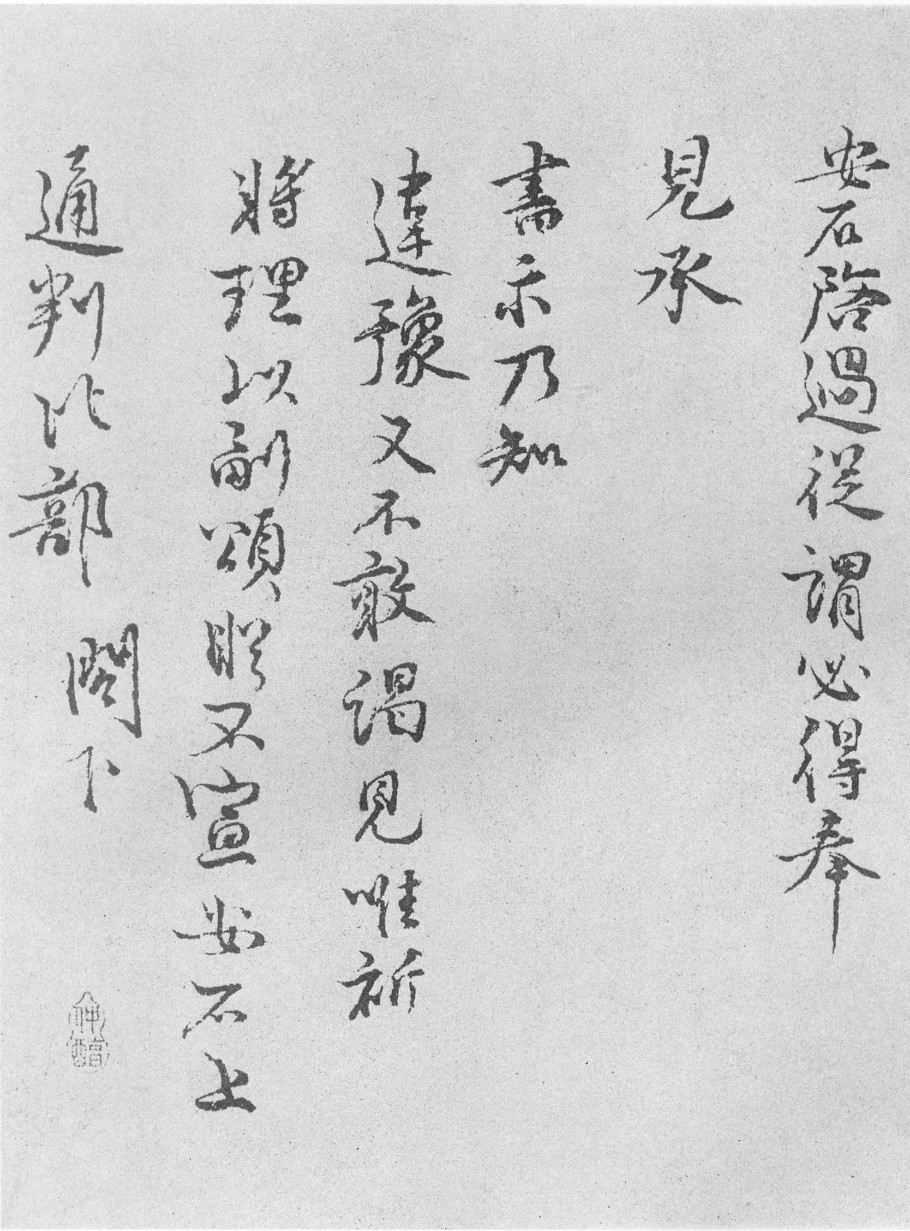 安石啓過從謂必得奉
見承
書示乃知
違豫又不敢謁見唯祈
將理以副頌眡不宣安石上
通判比部 閤下